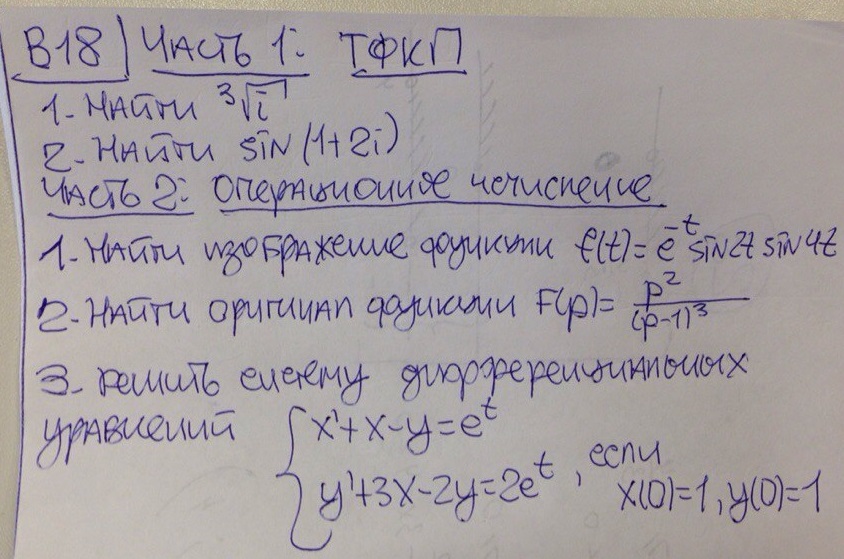 В18) Часть 1: ТФКП
1. Найти ³√i
2. Найти sin(1+2i)
Часть 2: Операционное исчисление
1. Найти изображение функции f(t)=e^-t sin2t sin4t
2. Найти оригинал функции F(p)= p²/(p-1)³
3. Решить систему дифференциальных
уравнений { x'+x-y=e^t
y'+3x-2y=2e^t, если
x(0)=1, y(0)=1